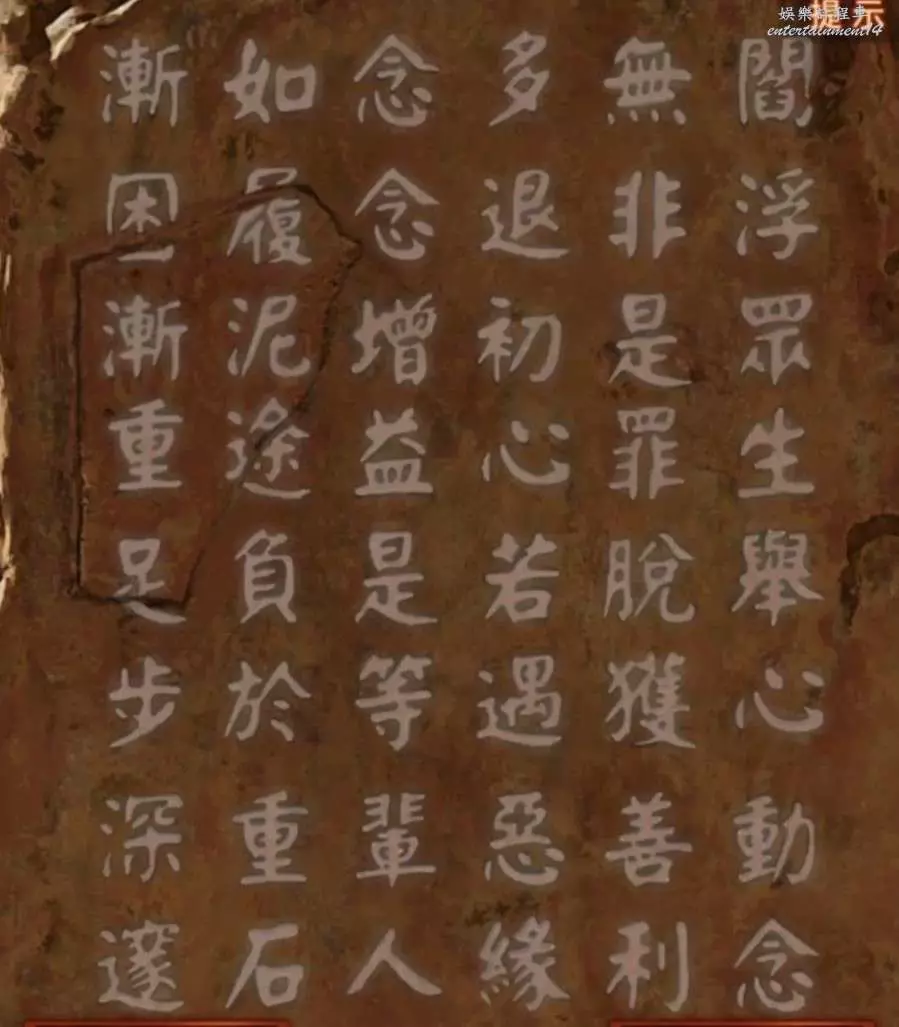 提示
娛樂計程車
entertainment14
閻浮眾生舉心動念
無非是罪脫獲善利
多退初心若遇惡緣
念念增益是等輩人
如履泥途負於重石
漸困漸重足步深邃